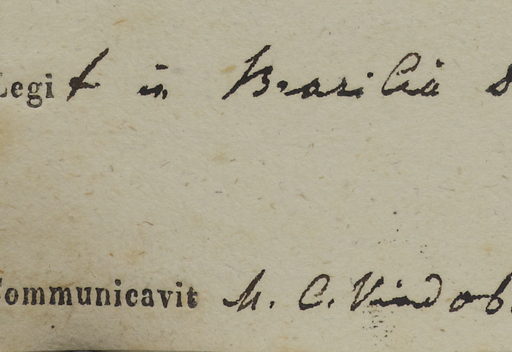 Legit in Brasiliâ
Communicavit M. C. Vindob.